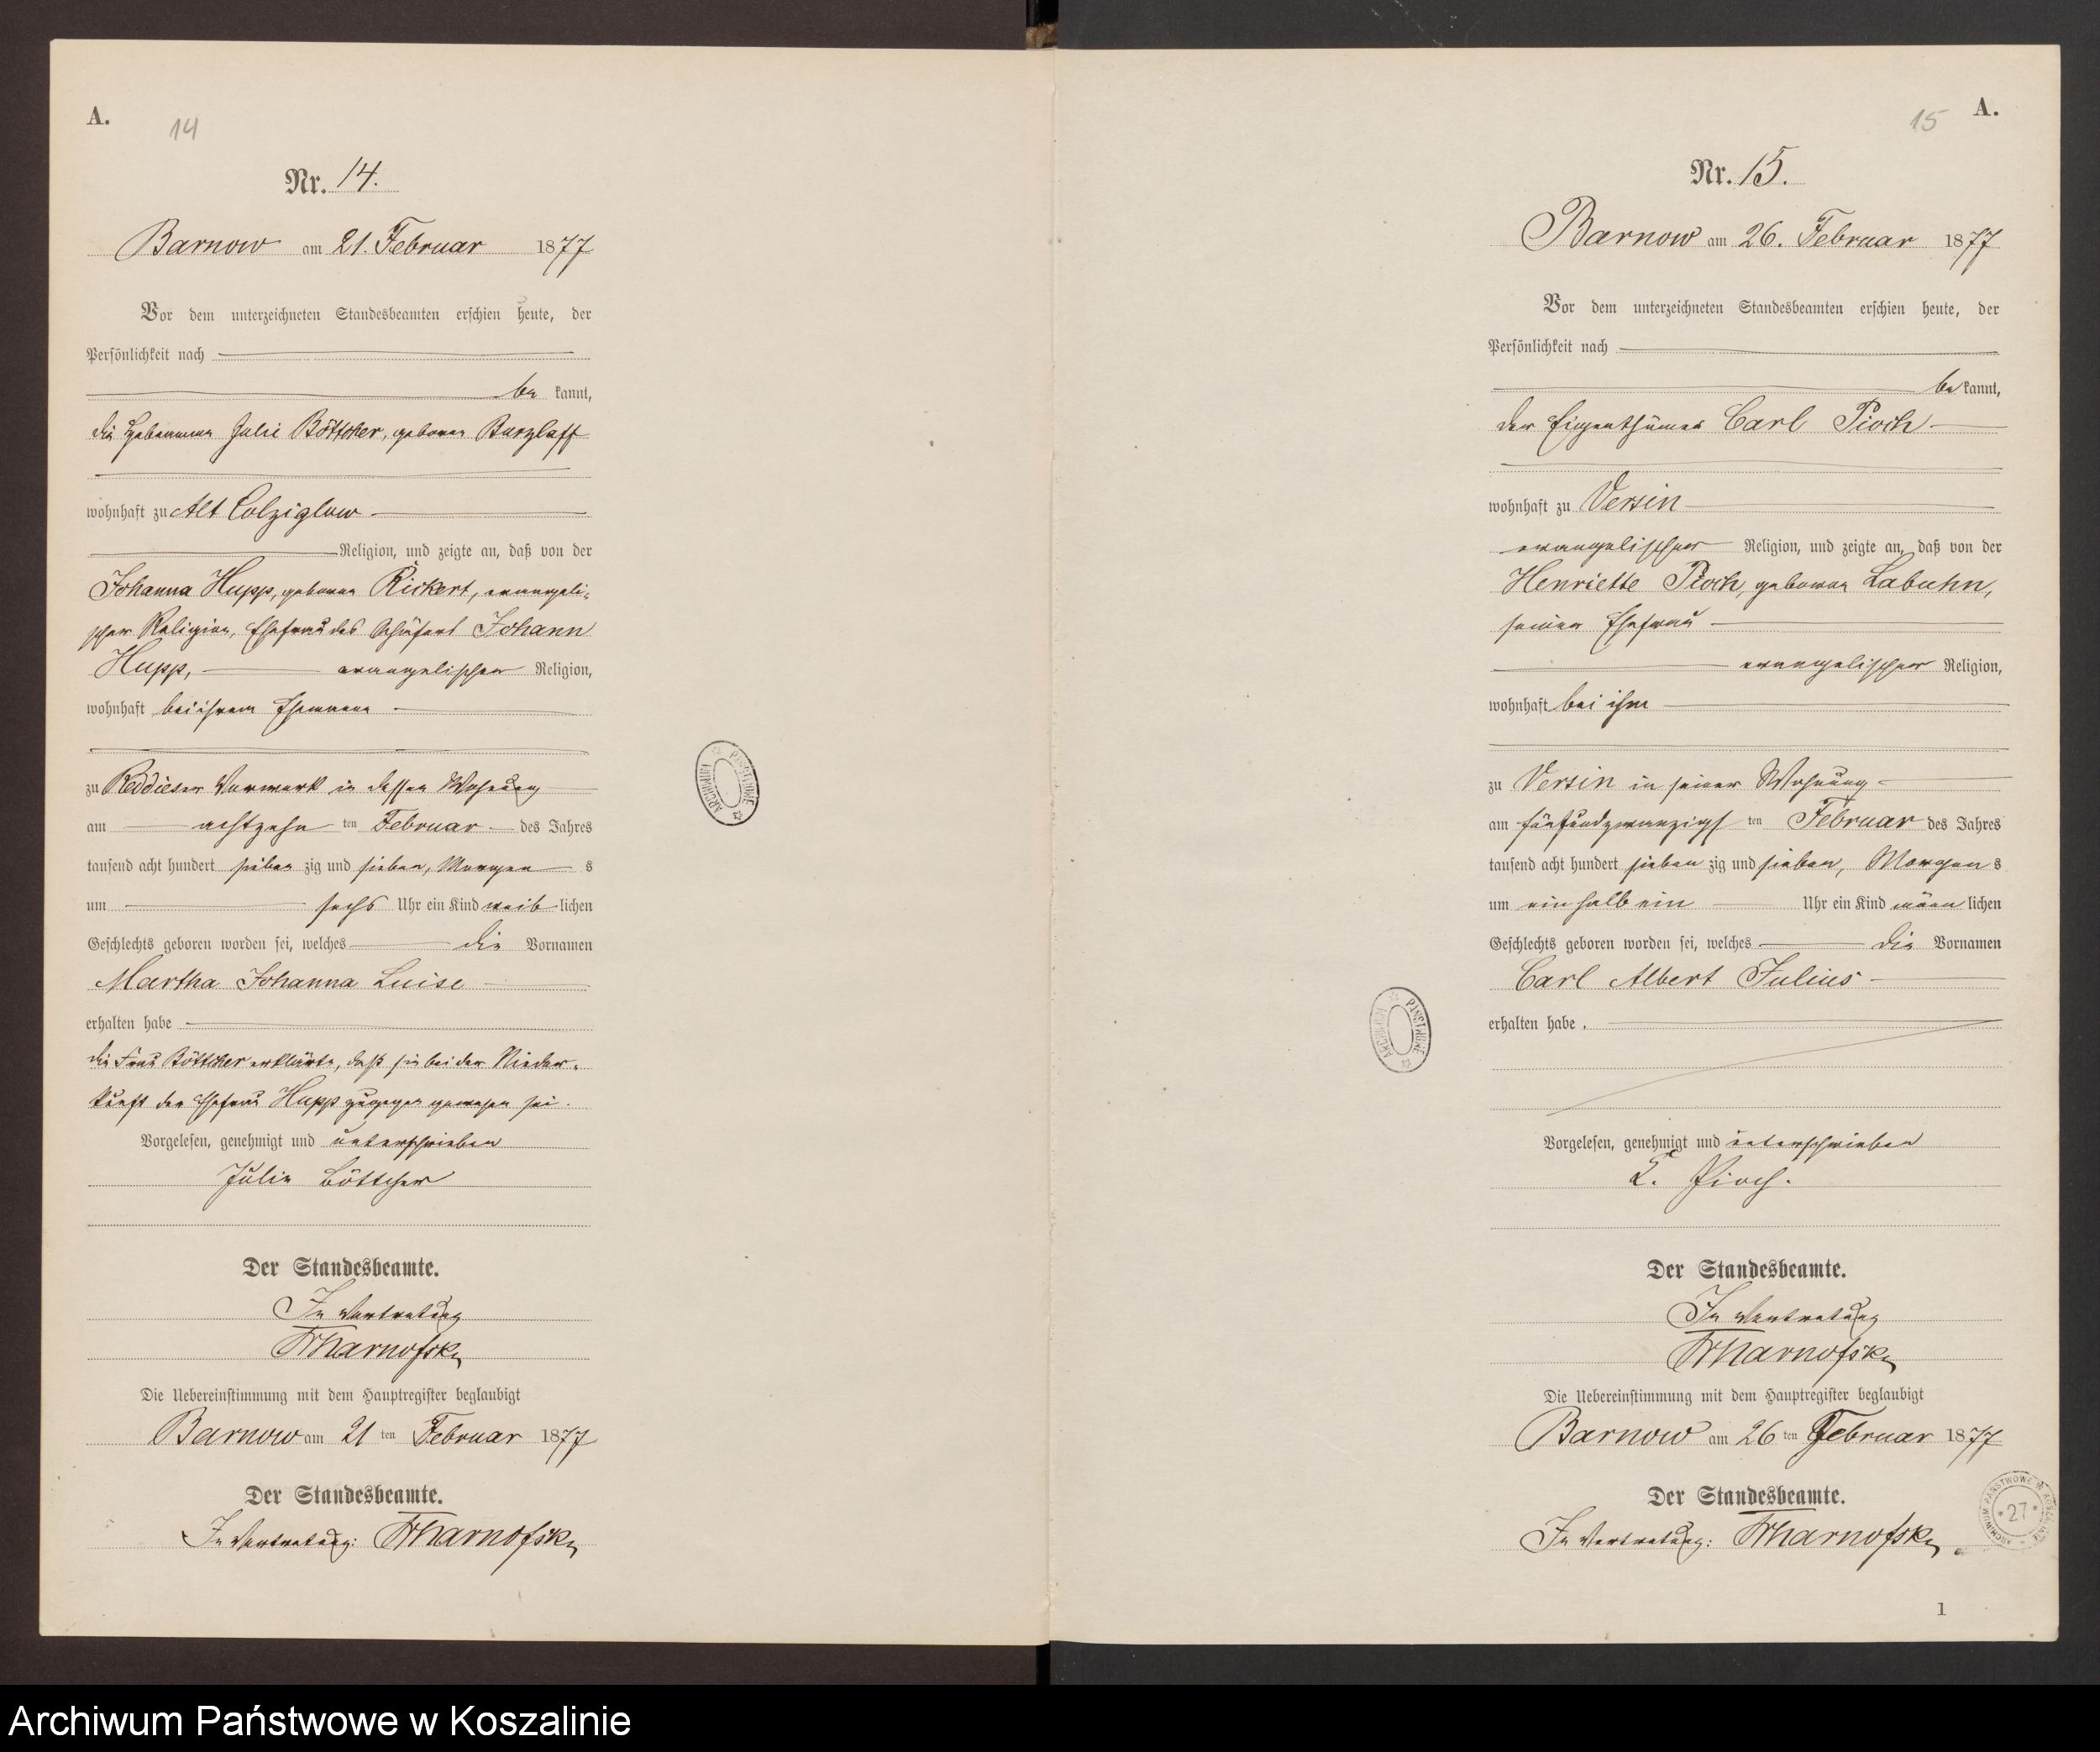 A.
14
Nr. 14.
Barnow am 21. Februar 1877
Vor dem unterzeichneten Standesbeamten erschien heute, der
Persönlichkeit nach
be kannt,
die Hebamme Julie Böttcher, geboren Burzlaff
wohnhaft zu Alt Colziglow
Religion, und zeigte an, daß von der
Johanna Hupp, geboren Rickert, evangeli-
scher Religion, Ehefrau des Schäfers Johann
Hupp, evangelischer Religion,
wohnhaft bei ihrem Ehemann
zu Reddieser Vorwerk in dessen Wohnung
am achtzehn ten Februar des Jahres
tausend acht hundert sieben zig und sieben, Morgen s
um sechs Uhr ein Kind weib lichen
Geschlechts geboren worden sei, welches die Vornamen
Martha Johanna Luise
erhalten habe
die Frau Böttcher erklärte, daß sie bei der Nieder-
kunft der Ehefrau Hupp zugegen gewesen sei.
Vorgelesen, genehmigt und unterschrieben
Julie Böttcher
Der Standesbeamte.
In Vertretung
Die Uebereinstimmung mit dem Hauptregister beglaubigt
Barnow am 21 ten Februar 1877
Der Standesbeamte.
In Vertretung:
15
A.
Nr. 15.
Barnow am 26. Februar 1877
Vor dem unterzeichneten Standesbeamten erschien heute, der
Persönlichkeit nach
be kannt,
der Eigenthümer Carl Pioch
wohnhaft zu Versin
evangelischer Religion, und zeigte an, daß von der
Henriette Pioch, geboren Labuhn,
seiner Ehefrau
evangelischer Religion,
wohnhaft bei ihm
zu Versin in seiner Wohnung
am fünfundzwanzigs ten Februar des Jahres
tausend acht hundert sieben zig und sieben, Morgen s
um ein halb ein Uhr ein Kind männ lichen
Geschlechts geboren worden sei, welches die Vornamen
Carl Albert Julius
erhalten habe.
Vorgelesen, genehmigt und unterschrieben
C. Pioch.
Der Standesbeamte.
In Vertretung
Die Uebereinstimmung mit dem Hauptregister beglaubigt
Barnow am 26 ten Februar 1877
Der Standesbeamte.
In Vertretung:
27
1
ARCHIWUM PAŃSTWOWE
ARCHIWUM PAŃSTWOWE
Archiwum Państwowe w Koszalinie